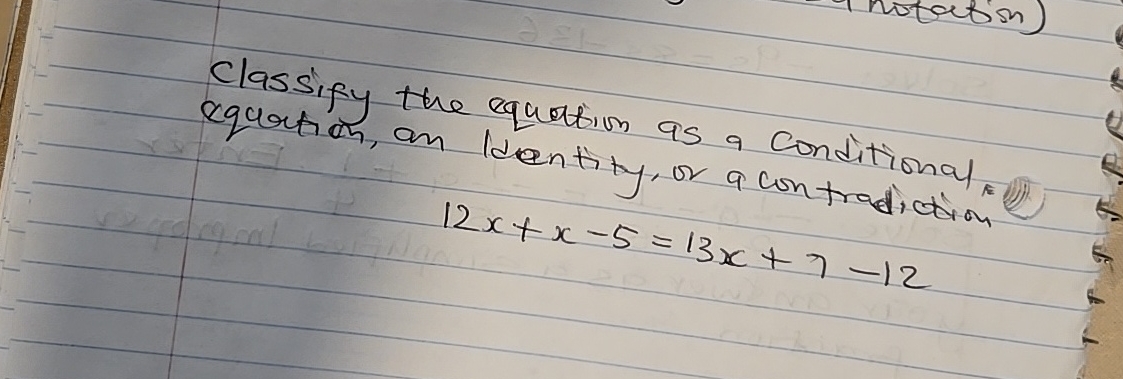 notation)
Classify the equation as a Conditional
equation, an Identity, or a contradiction
12x + x - 5 = 13x + 7 - 12